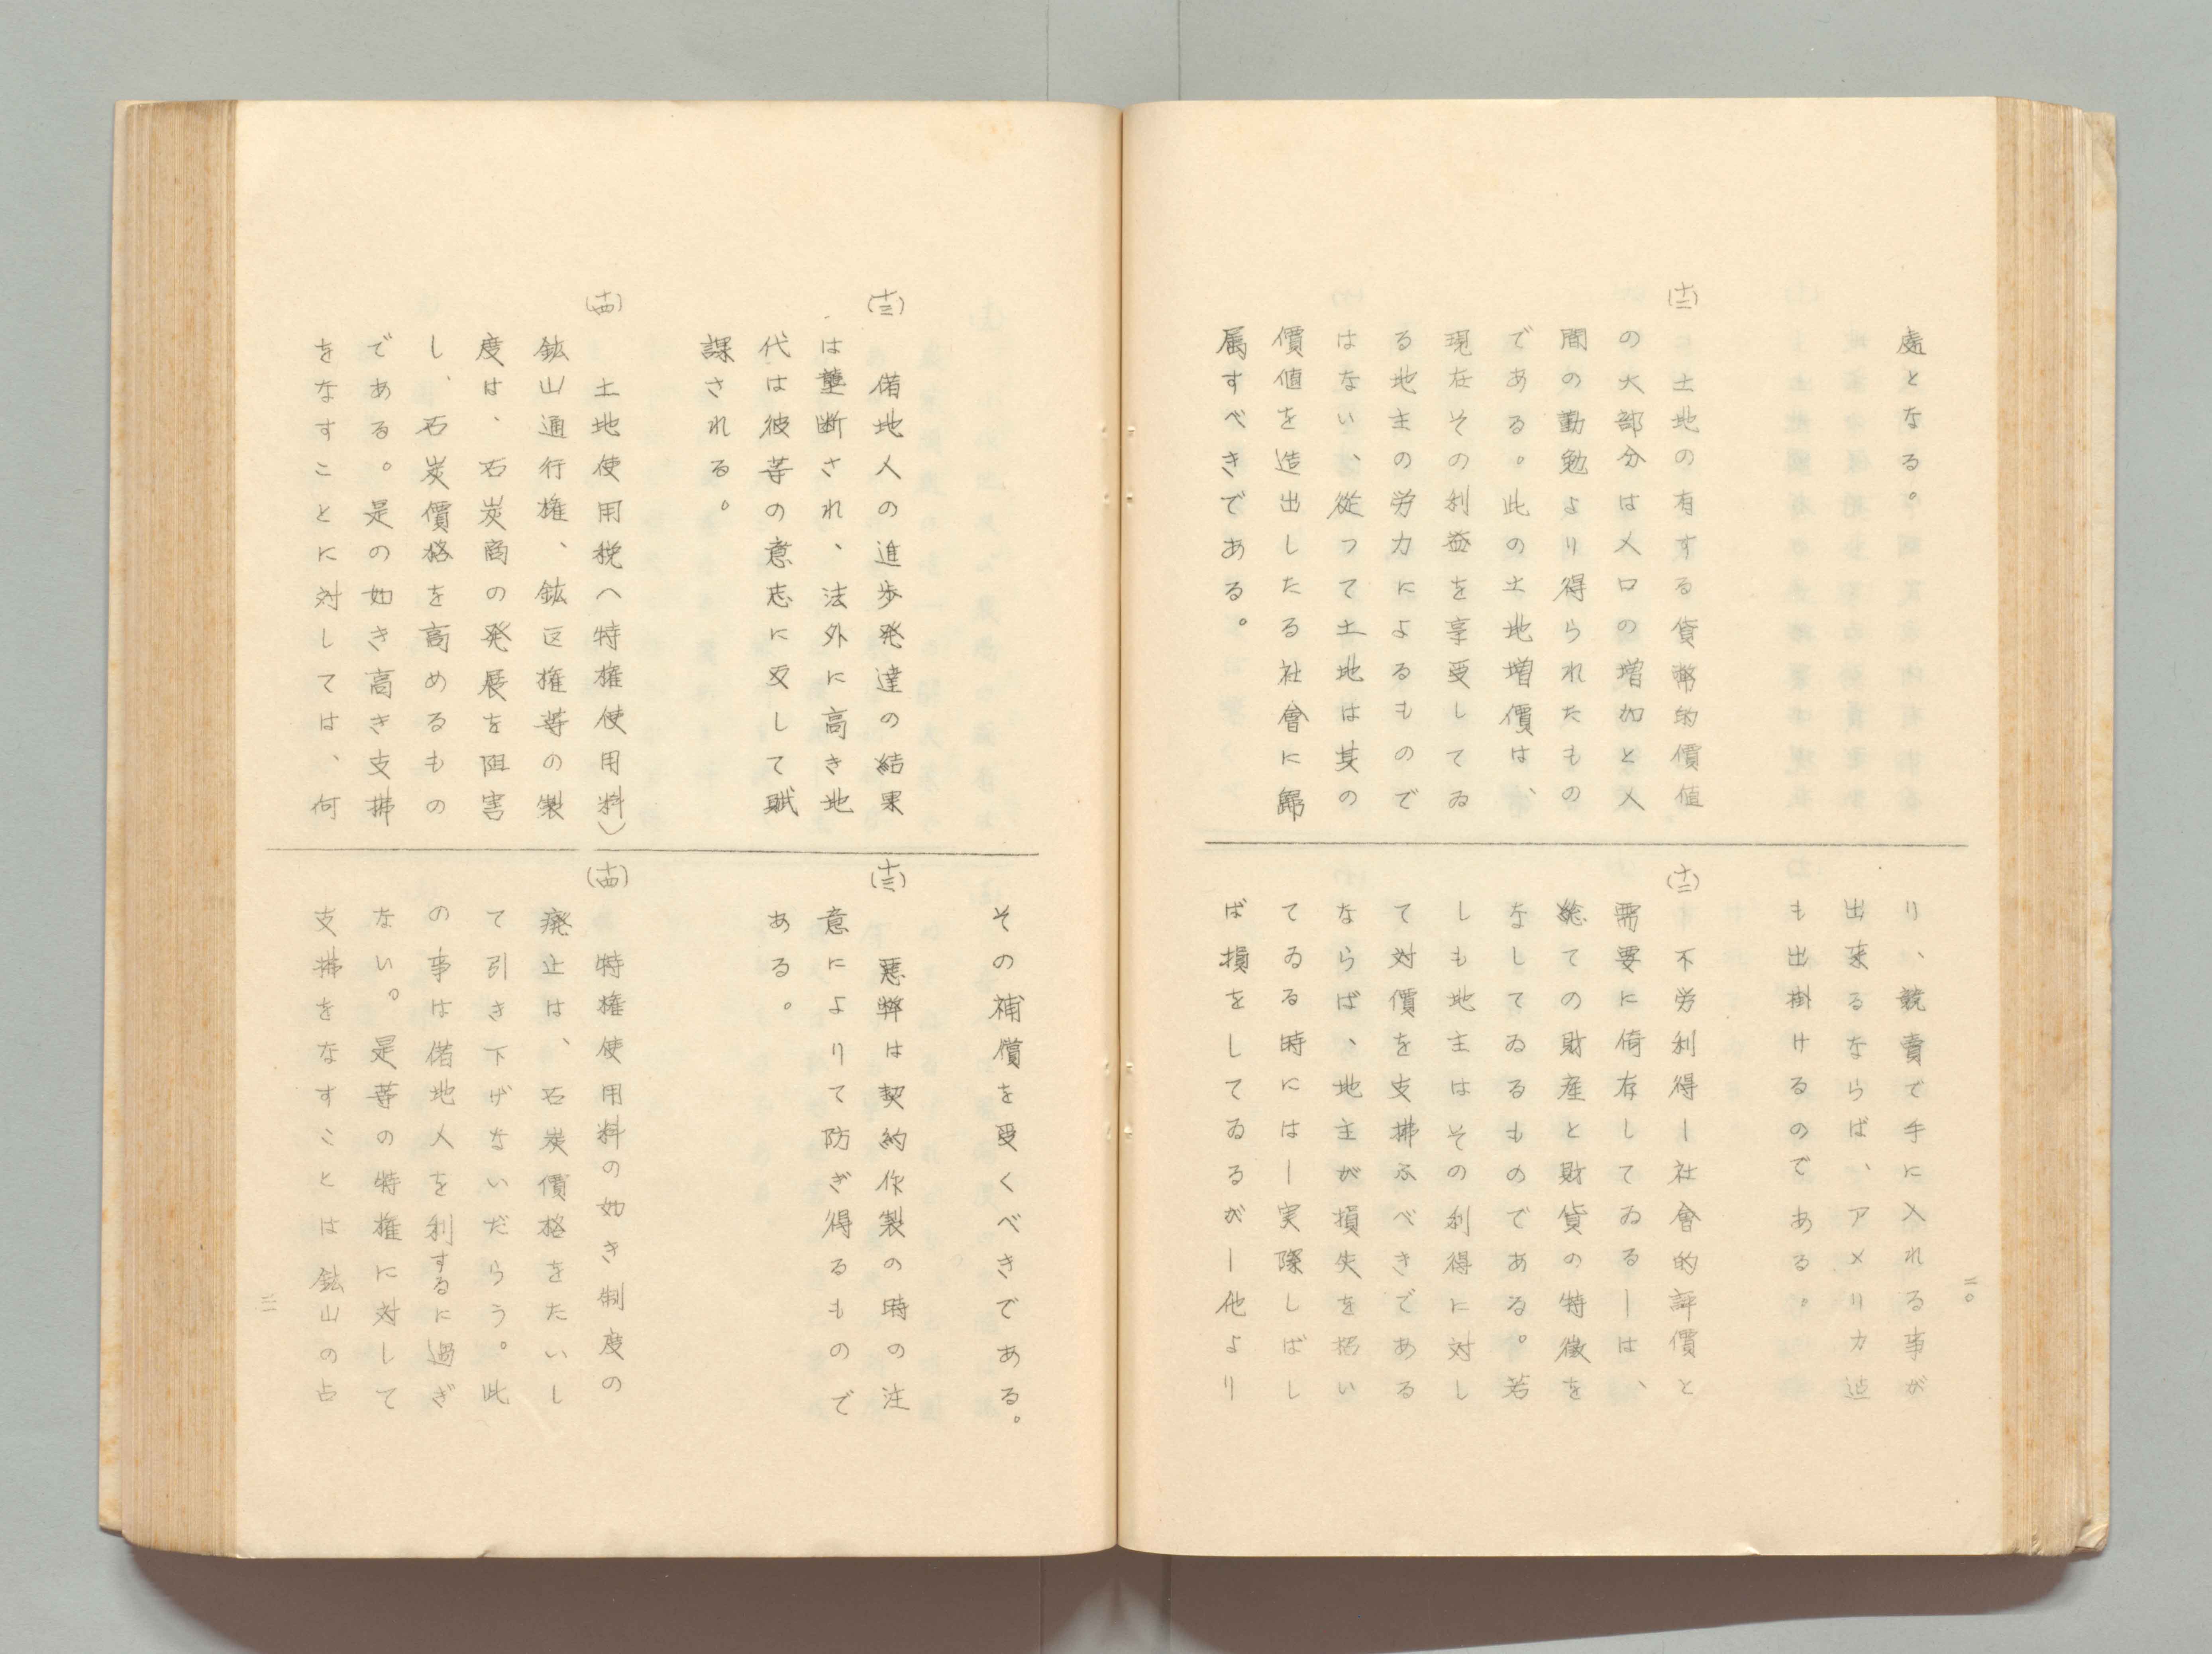 處となる。
(十二)
土地の有する貨幣的價値
の大部分は人口の増加と人
間の勤勉より得られたもの
である。此の土地増價は、
現在その利益を享受してゐ
る地主の労力によるもので
はない、從つて土地は其の
價値を造出したる社會に歸
属すべきである。
り、競賣で手に入れる事が
出來るならば、アメリカ迄
も出掛けるのである。
(十二)
不労利得ー社會的評價と
需要に倚存してゐるーは、
総ての財産と財貨の特徴を
なしてゐるものである。若
しも地主はその利得に対し
て対價を支拂ふべきである
ならば、地主が損失を招い
てゐる時にはー実際しばし
ば損をしてゐるがー他より
二〇
(十三)
借地人の進歩発達の結果
は壟断され、法外に高き地
代は彼等の意志に反して賦
課される。
(十四)
土地使用税へ特権使用料)
鉱山通行権、鉱区権等の製
度は、石炭商の発展を阻害
し、石炭價格を高めるもの
である。是の如き高き支拂
をなすことに対しては、何
その補償を受くべきである。
(十三)
悪弊は契約作製の時の注
意によりて防ぎ得るもので
ある。
(十四)
特権使用料の如き制度の
廃止は、石炭價格をたいし
て引き下げないだらう。此
の事は借地人を利するに過ぎ
ない。是等の特権に対して
支拂をなすことは鉱山の占
二一